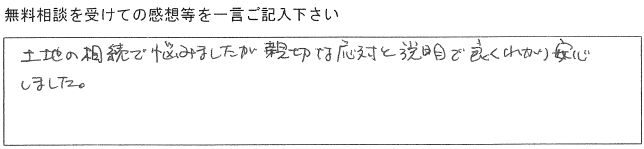 無料相談を受けての感想等を一言ご記入下さい
土地の相続で悩みましたが親切な応対と説明で良くわかり安心
しました。